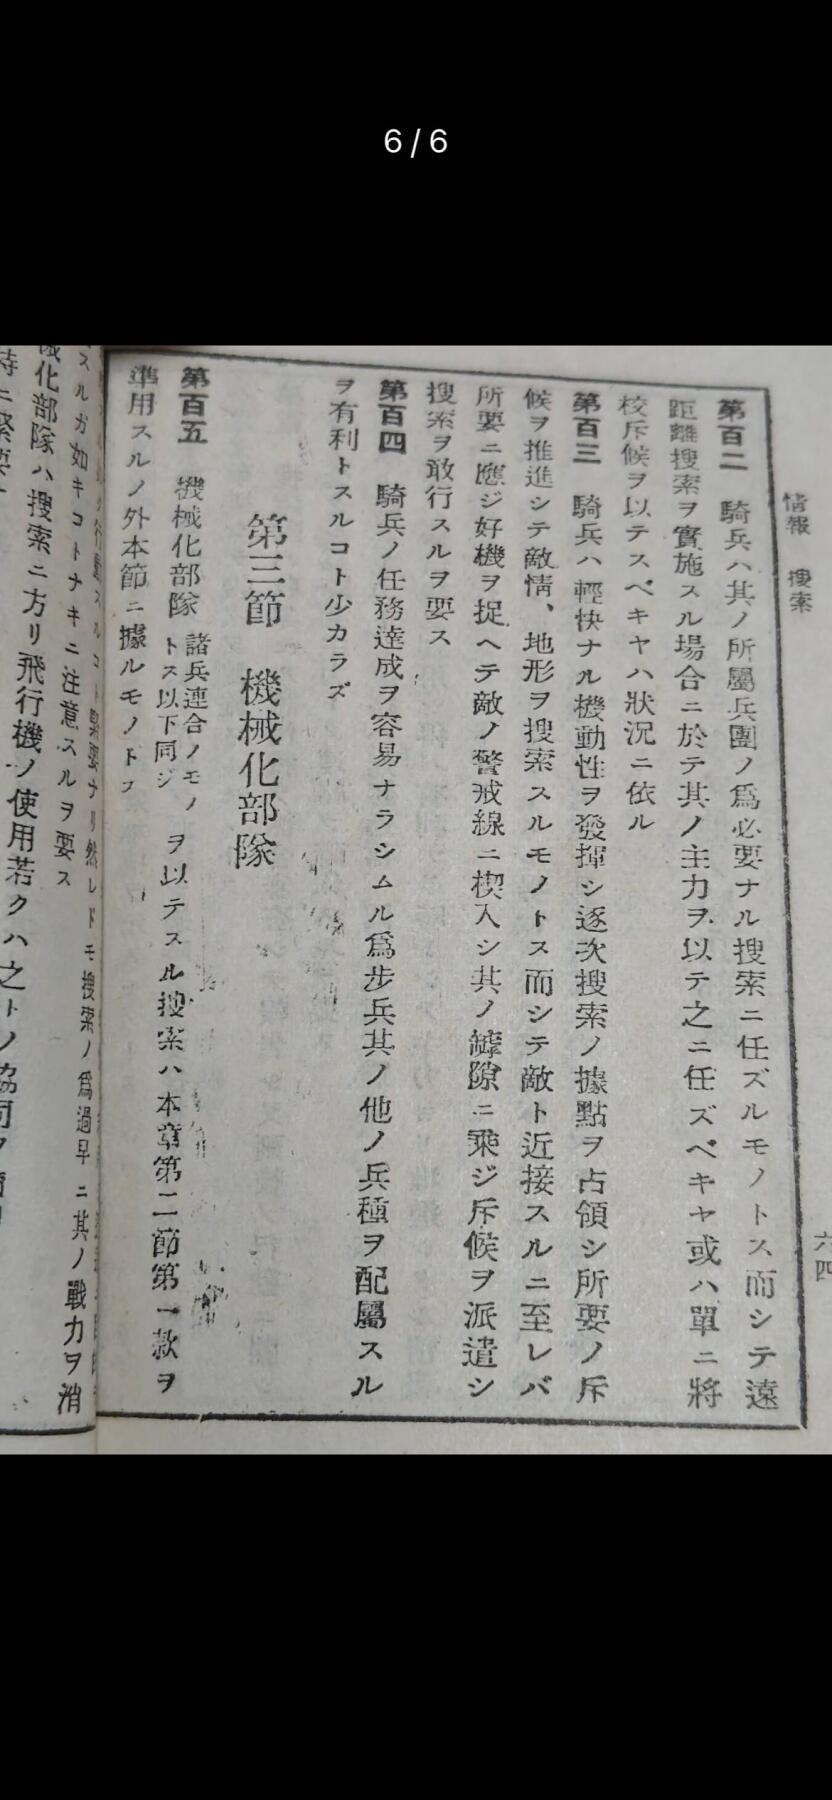 6/6
情報 搜索
六四
第百二 騎兵ハ其ノ所屬兵團ノ爲必要ナル搜索ニ任ズルモノトス而シテ遠
距離搜索ヲ實施スル場合ニ於テ其ノ主力ヲ以テ之ニ任ズベキヤ或ハ單ニ將
校斥候ヲ以テスベキヤハ狀況ニ依ル
第百三 騎兵ハ輕快ナル機動性ヲ發揮シ逐次搜索ノ據點ヲ占領シ所要ノ斥
候ヲ推進シテ敵情、地形ヲ搜索スルモノトス而シテ敵ト近接スルニ至レバ
所要ニ應ジ好機ヲ捉ヘテ敵ノ警戒線ニ楔入シ其ノ罅隙ニ乘ジ斥候ヲ派遣シ
搜索ヲ敢行スルヲ要ス
第百四 騎兵ノ任務達成ヲ容易ナラシムル爲步兵其ノ他ノ兵種ヲ配屬スル
ヲ有利トスルコト少カラズ
第三節 機械化部隊
第百五 機械化部隊 諸兵連合ノモノトス以下同ジ ヲ以テスル搜索ハ本章第二節第一款ヲ
準用スルノ外本節ニ據ルモノトス
行動スルコト緊要ナリ然レドモ搜索ノ爲過早ニ其ノ戰力ヲ消
スルガ如キコトナキニ注意スルヲ要ス
化部隊ハ搜索ニ方リ飛行機ノ使用若クハ之トノ協同ヲ
特ニ緊要